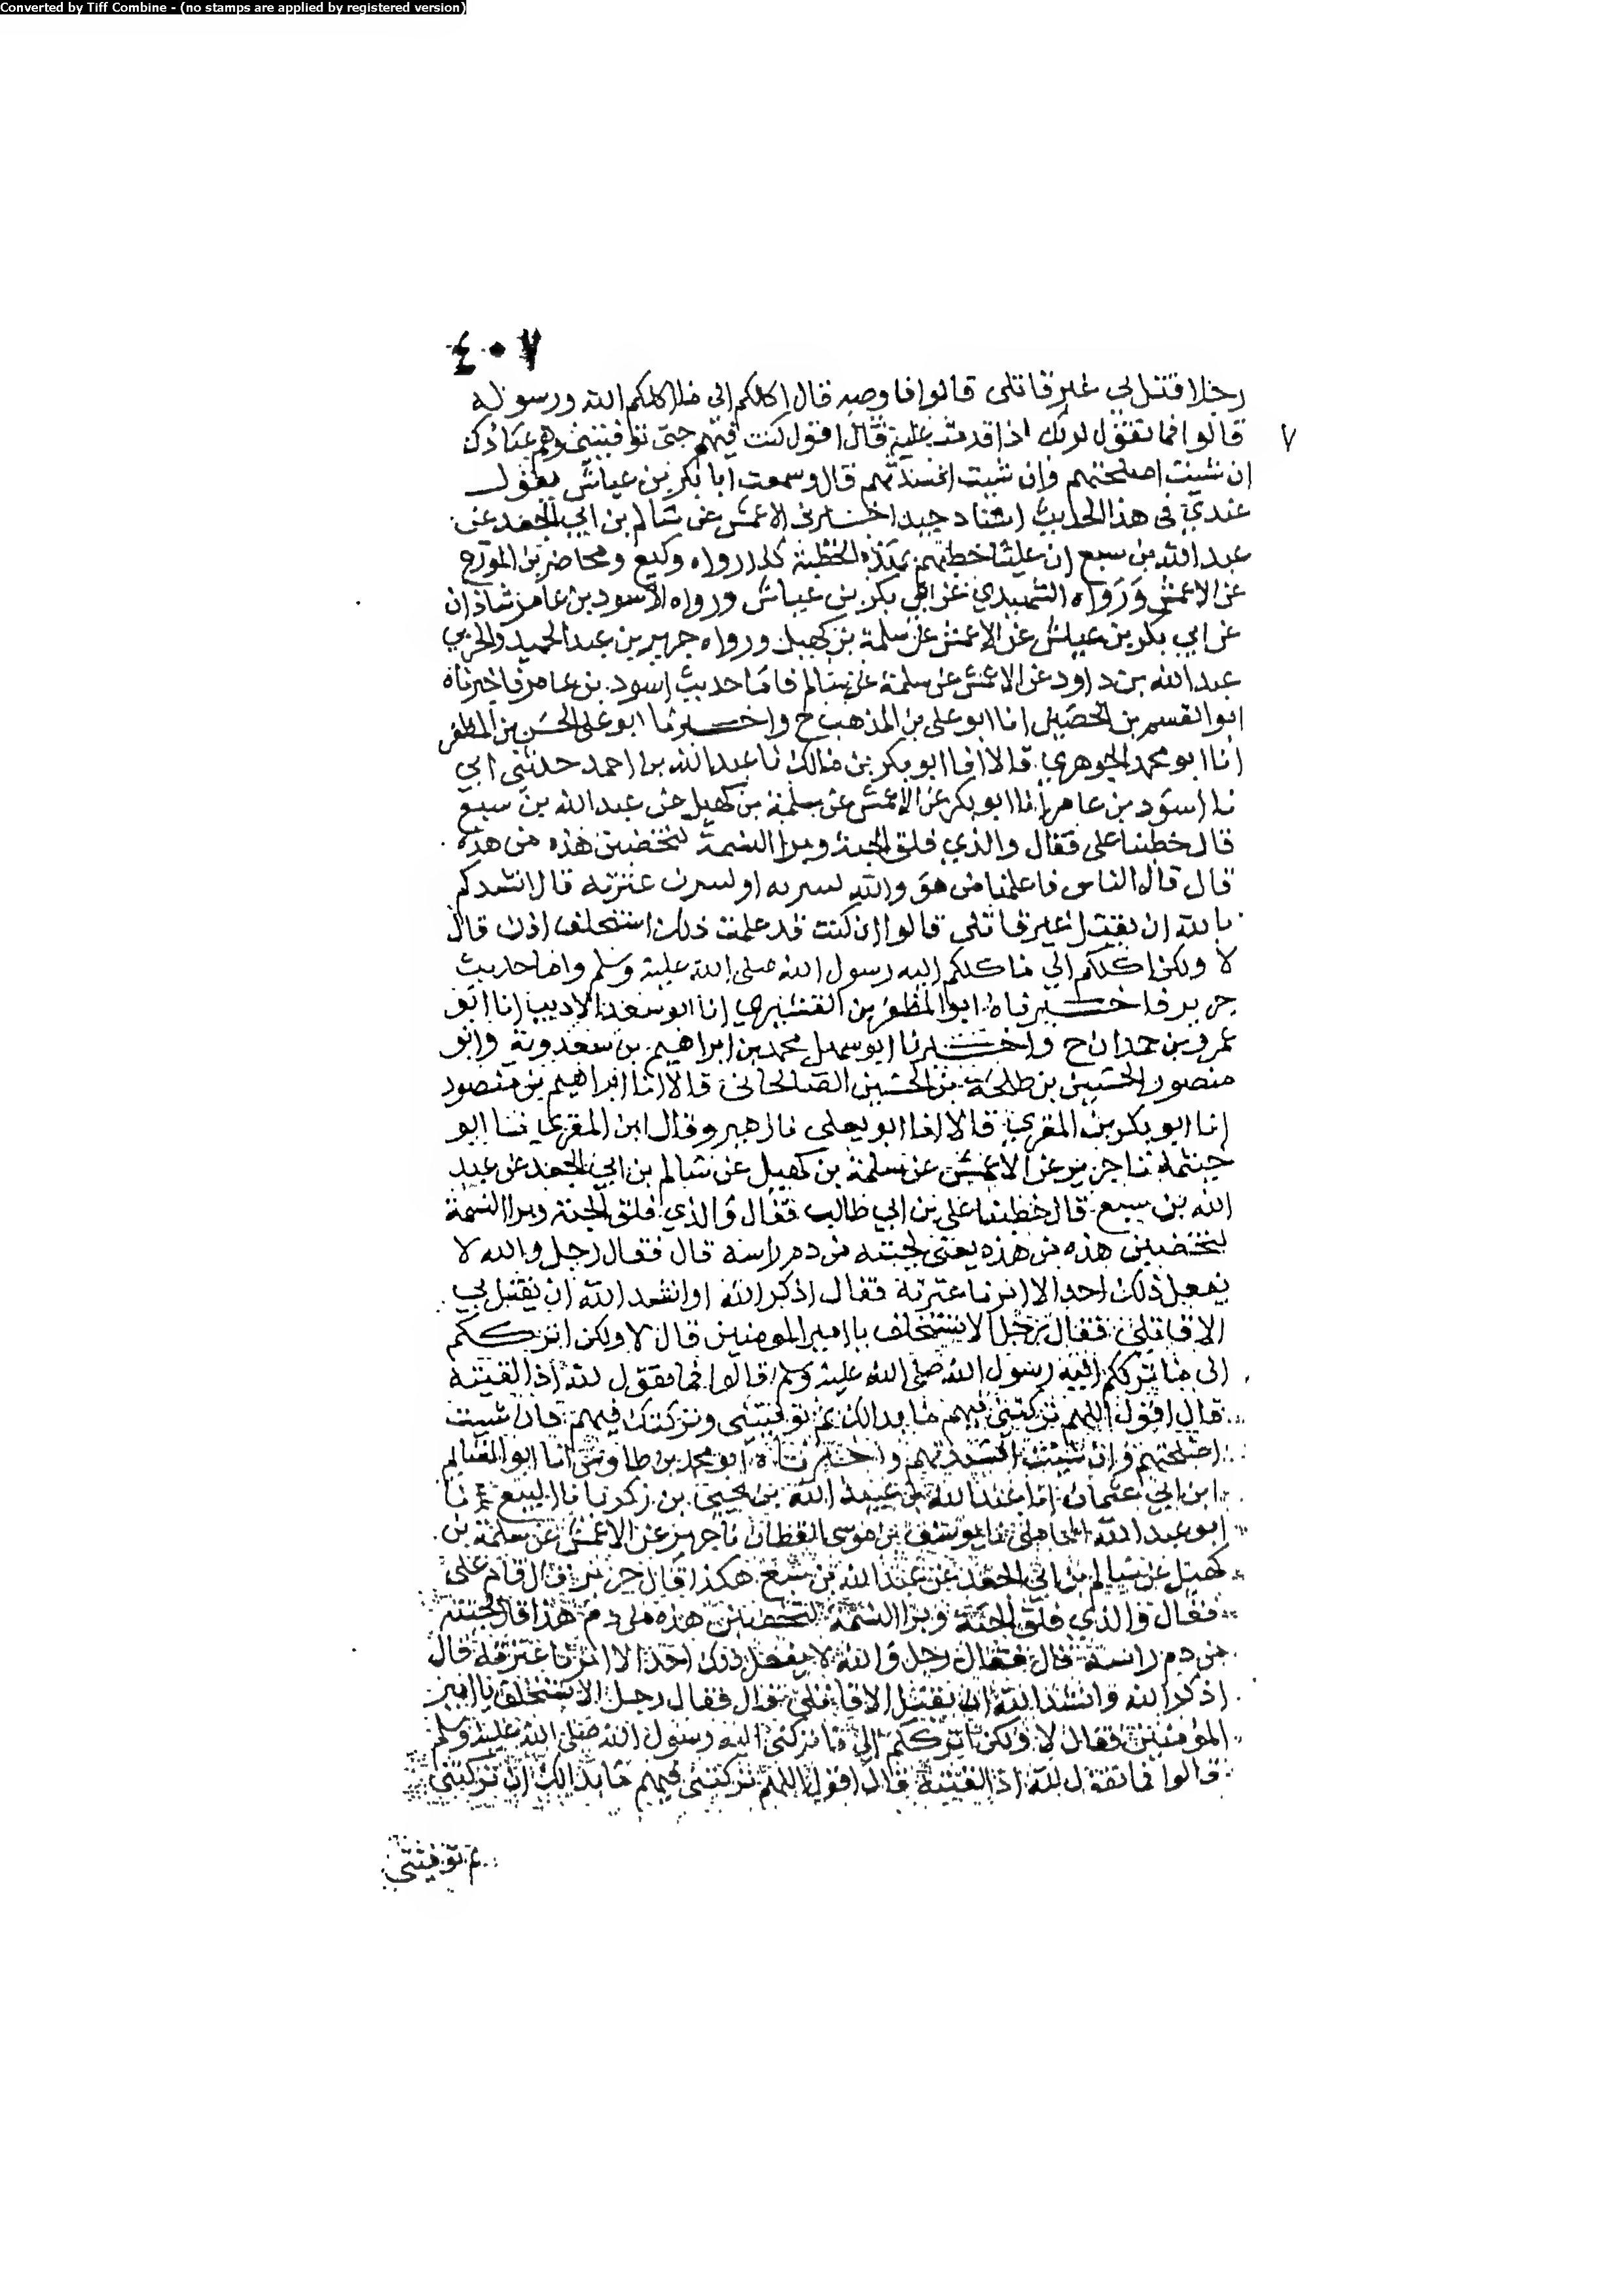 Converted by Tiff Combine - (no stamps are applied by registered version)
٤٠٧
رجلا قتل بي غير قاتلي قالوا فاوصه قال اكلكم الى ما وكلكم الله ورسوله
٧
قالوا فما تقول لربك اذا قدمت عليه قال اقول كنت فيهم حتى توفيتني وهم عبادك
ان شيت اصلحتهم وان شيت افسدتهم قال وسمعت ابا بكر بن عياش يقول
عندي في هذا الحديث اسناد جيد اخبرني الاعمش عن سالم بن ابي الجعد عن
عبد الله بن سبع ان عليا خطبهم بهذه الخطبة كذا رواه وكيع ومحاضر بن المورع
عن الاعمش ورواه عن ابي بكر بن عياش ورواه الاسود بن عامر شاذان
عن ابي بكر بن عياش عن الاعمش عن سلمة بن كهيل ورواه جرير بن عبد الحميد والخريبي
عبد الله بن داود عن الاعمش عن سلمة عن سالم فاما حديث اسود بن عامر فاخبرناه
ابو القسم بن الحصين انا ابو علي بن المذهب ح واخبرنا ابو علي الحسن بن المظفر
انا ابو محمد الجوهري قالا انا ابو بكر بن مالك نا عبد الله بن احمد حدثني ابي
نا اسود بن عامر انا ابو بكر عن الاعمش عن سلمة بن كهيل عن عبد الله بن سبع
قال خطبنا علي فقال والذي فلق الحبة وبرا النسمة لتخضبن هذه من هذه
قال قال الناس فاعلمنا من هو والله لنبيرنه او لنبيرن عترته قال انشدكم
بالله ان يقتل غير قاتلي قالوا ان كنت قد علمت ذلك استخلف اذن قال
لا ولكن اكلكم الى ما كلكم اليه رسول الله صلى الله عليه وسلم واما حديث
جرير فاخبرناه ابو المظفر بن القشيري انا ابو سعد الاديب انا ابو
عمرو بن حمدان ح واخبرنا ابو سهل محمد بن ابراهيم بن سعدوية وابو
منصور الحسين بن طلحة بن الحسين الصالحاني قالا انا ابراهيم بن منصور
انا ابو بكر بن المقري قالا انا ابو يعلى نا زهير وقال ابن المقري نا ابو
خيثمة نا جرير عن الاعمش عن سلمة بن كهيل عن سالم بن ابي الجعد عن عبد
الله بن سبع قال خطبنا علي بن ابي طالب فقال والذي فلق الحبة وبرا النسمة
لتخضبن هذه من هذه يعني لحيته من دم راسه قال فقال رجل والله لا
يفعل ذلك احد الا ابرنا عترته فقال اذكر الله او انشد الله ان يقتل بي
الا قاتلي فقال رجل الا تستخلف يا امير المومنين قال لا ولكن اترككم
الى ما ترككم اليه رسول الله صلى الله عليه وسلم قالوا فما تقول لله اذا لقيته
قال اقول اللهم تركتني فيهم ما بدا لك ثم توفيتني وتركتك فيهم فان شيت
اصلحتهم وان شيت افسدتهم واخبرناه ابو محمد بن طاوس انا ابو الغنايم
ابن ابي عثمان انا عبد الله بن عبيد الله بن يحيى بن زكريا البيع نا
ابو عبد الله المحاملي نا يوسف بن موسى القطان نا جرير عن الاعمش عن سلمة بن
كهيل عن سالم بن ابي الجعد عن عبد الله بن سبع هكذا قال جرير قال قام علي
فقال والذي فلق الحبة وبرا النسمة لتخضبن هذه من دم هذا قال لحيته
من دم راسه قال فقال رجل والله لا يفعل ذلك احد الا ابرنا عترته قال
اذكر الله وانشد الله ان يقتل الا قاتلي قال فقال رجل الا تستخلف يا امير
المؤمنين فقال لا ولكن اترككم الى ما تركني اليه رسول الله صلى الله عليه وسلم
قالوا فما تقول لله اذا لقيته قال اقول اللهم تركتني فيهم ما بدا لك ان تركتني
ثم توفيتني